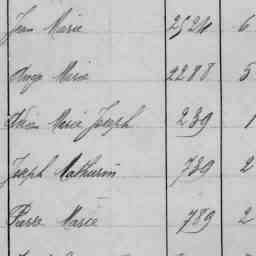 Jean Marie 2524 6
Ange Marie 2288 5
Marie Joseph 239 1
Joseph Mathurin 789 2
Pierre Marie 789 2